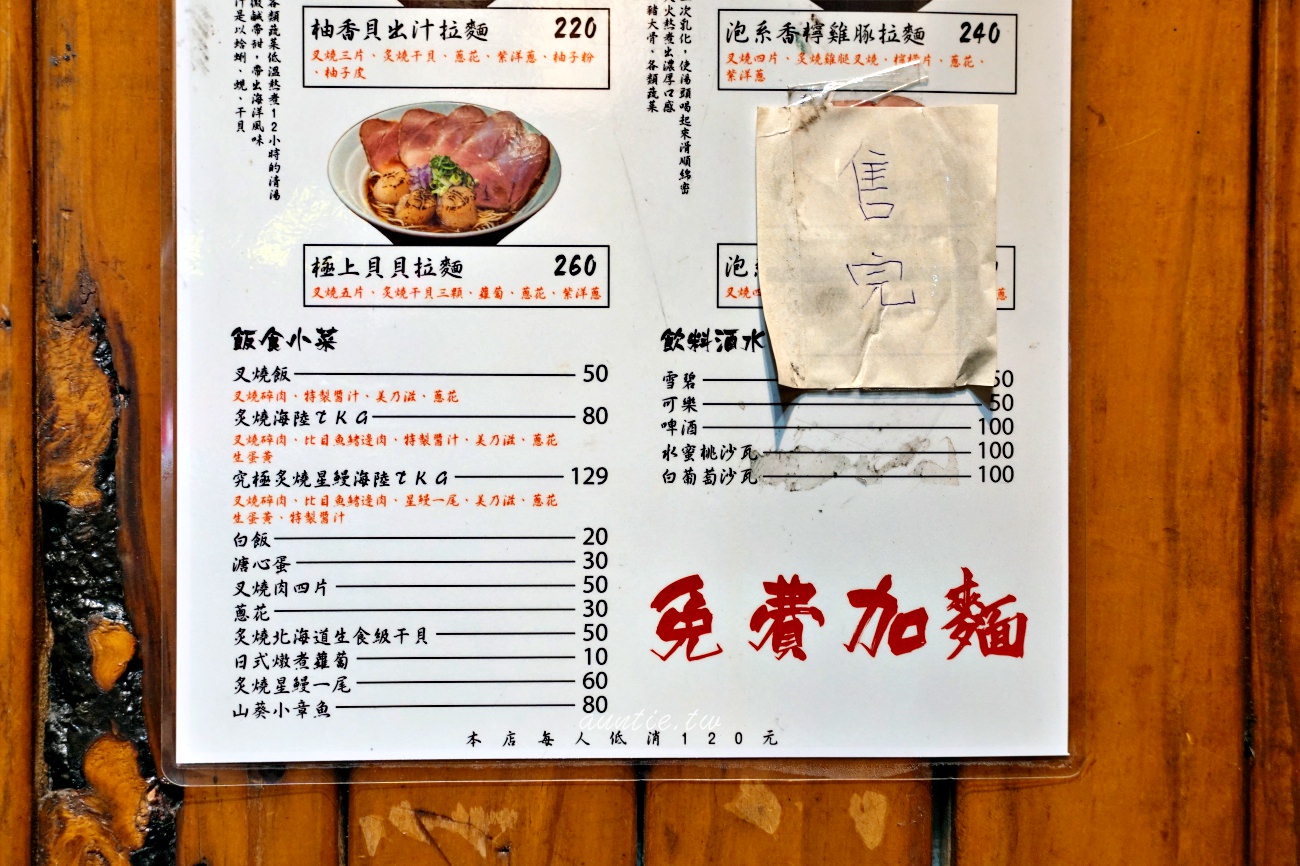 各類蔬菜低溫熬煮12小時的清湯
微鹹帶甜，帶出海洋風味
汁是以蛤蜊、蜆、干貝
柚香貝出汁拉麵 220
叉燒三片、炙燒干貝、蔥花、紫洋蔥、柚子粉
、柚子皮
極上貝貝拉麵 260
叉燒五片、炙燒干貝三顆、蘿蔔、蔥花、紫洋蔥
次乳化，使湯頭喝起來滑順綿密
火熬煮出濃厚口感
豬大骨、各類蔬菜
泡系香檸雞豚拉麵 240
叉燒四片、炙燒雞腿叉燒、檸檬片、蔥花、
紫洋蔥
售完
泡
叉燒
蔥
飯食小菜
叉燒飯 50
叉燒碎肉、特製醬汁、美乃滋、蔥花
炙燒海陸TKG 80
叉燒碎肉、比目魚鰭邊肉、特製醬汁、美乃滋、蔥花
生蛋黃
究極炙燒星鰻海陸TKG 129
叉燒碎肉、比目魚鰭邊肉、星鰻一尾、美乃滋、蔥花
生蛋黃、特製醬汁
白飯 20
溏心蛋 30
叉燒肉四片 50
蔥花 30
炙燒北海道生食級干貝 50
日式燉煮蘿蔔 10
炙燒星鰻一尾 60
山葵小章魚 80
飲料酒水
雪碧 50
可樂 50
啤酒 100
水蜜桃沙瓦 100
白葡萄沙瓦 100
免費加麵
auntie.tw
本店每人低消120元